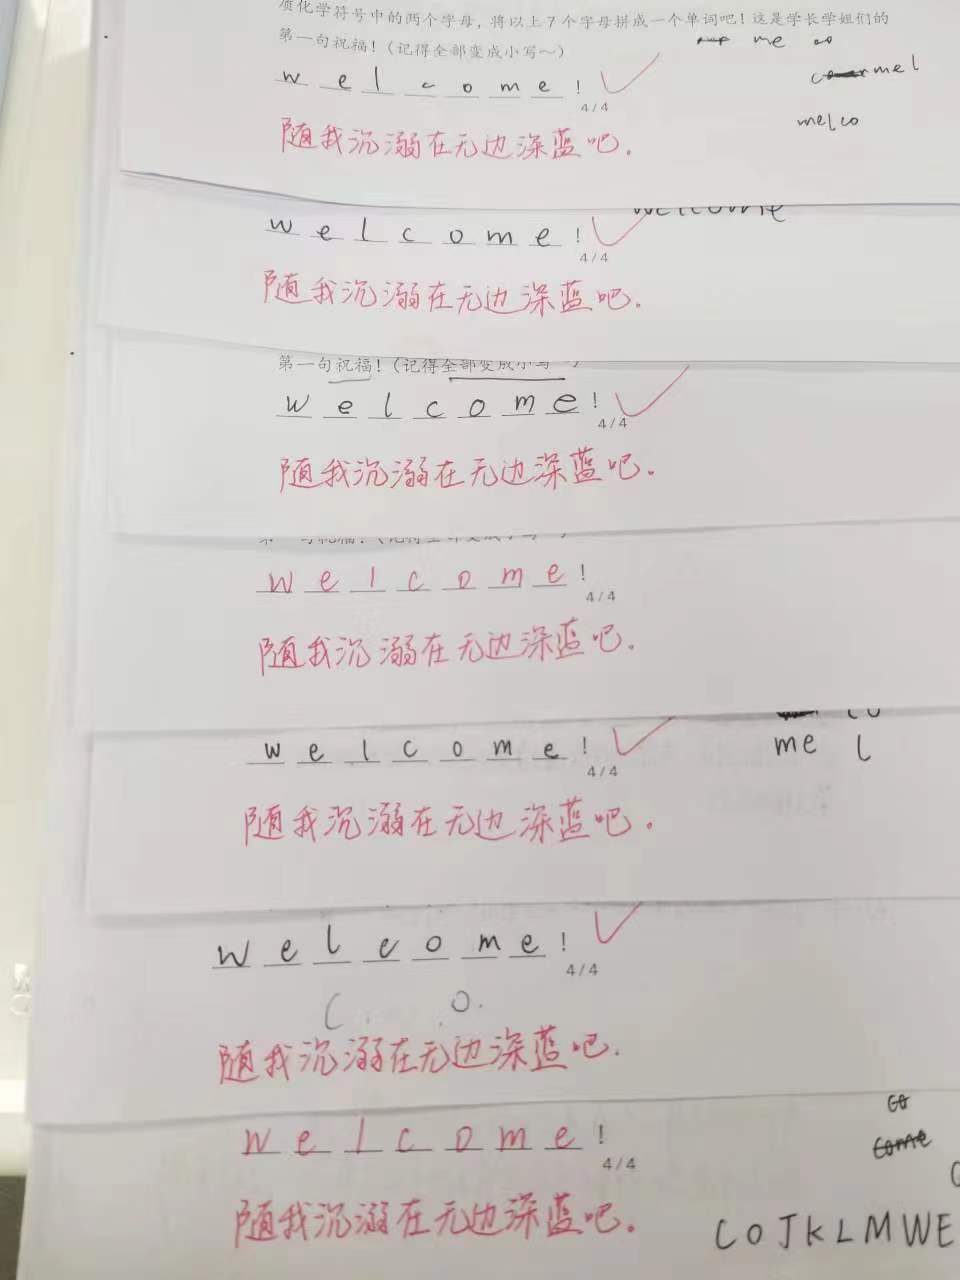 质化学符号中的两个字母，将以上7个字母拼成一个单词吧！这是学长学姐们的
第一句祝福！（记得全部变成小写～）
me co
mel
melco
welcome!
4/4
随我沉溺在无边深蓝吧.
welcome
welcome!
4/4
随我沉溺在无边深蓝吧.
第一句祝福！（记得全部变成小写
welcome!
4/4
随我沉溺在无边深蓝吧.
welcome!
4/4
随我沉溺在无边深蓝吧.
co
me l
welcome!
4/4
随我沉溺在无边深蓝吧.
welcome!
4/4
C. .O.
随我沉溺在无边深蓝吧.
co
come
welcome!
4/4
随我沉溺在无边深蓝吧.
COJKLMWE